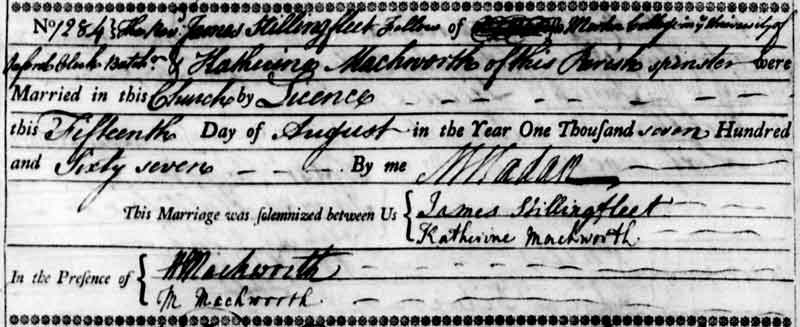 No. 1284 } The Revd. James Stillingfleet Fellow of Merton College in ye University of
Oxford Clerk Batchr. & Katherine Mackworth of this Parish spinster were
Married in this Church by Licence
this Fifteenth Day of August in the Year One Thousand seven Hundred
and Sixty seven By me
This Marriage was solemnized between Us { James Stillingfleet
Katherine Mackworth.
In the Presence of { H Mackworth
M Mackworth.